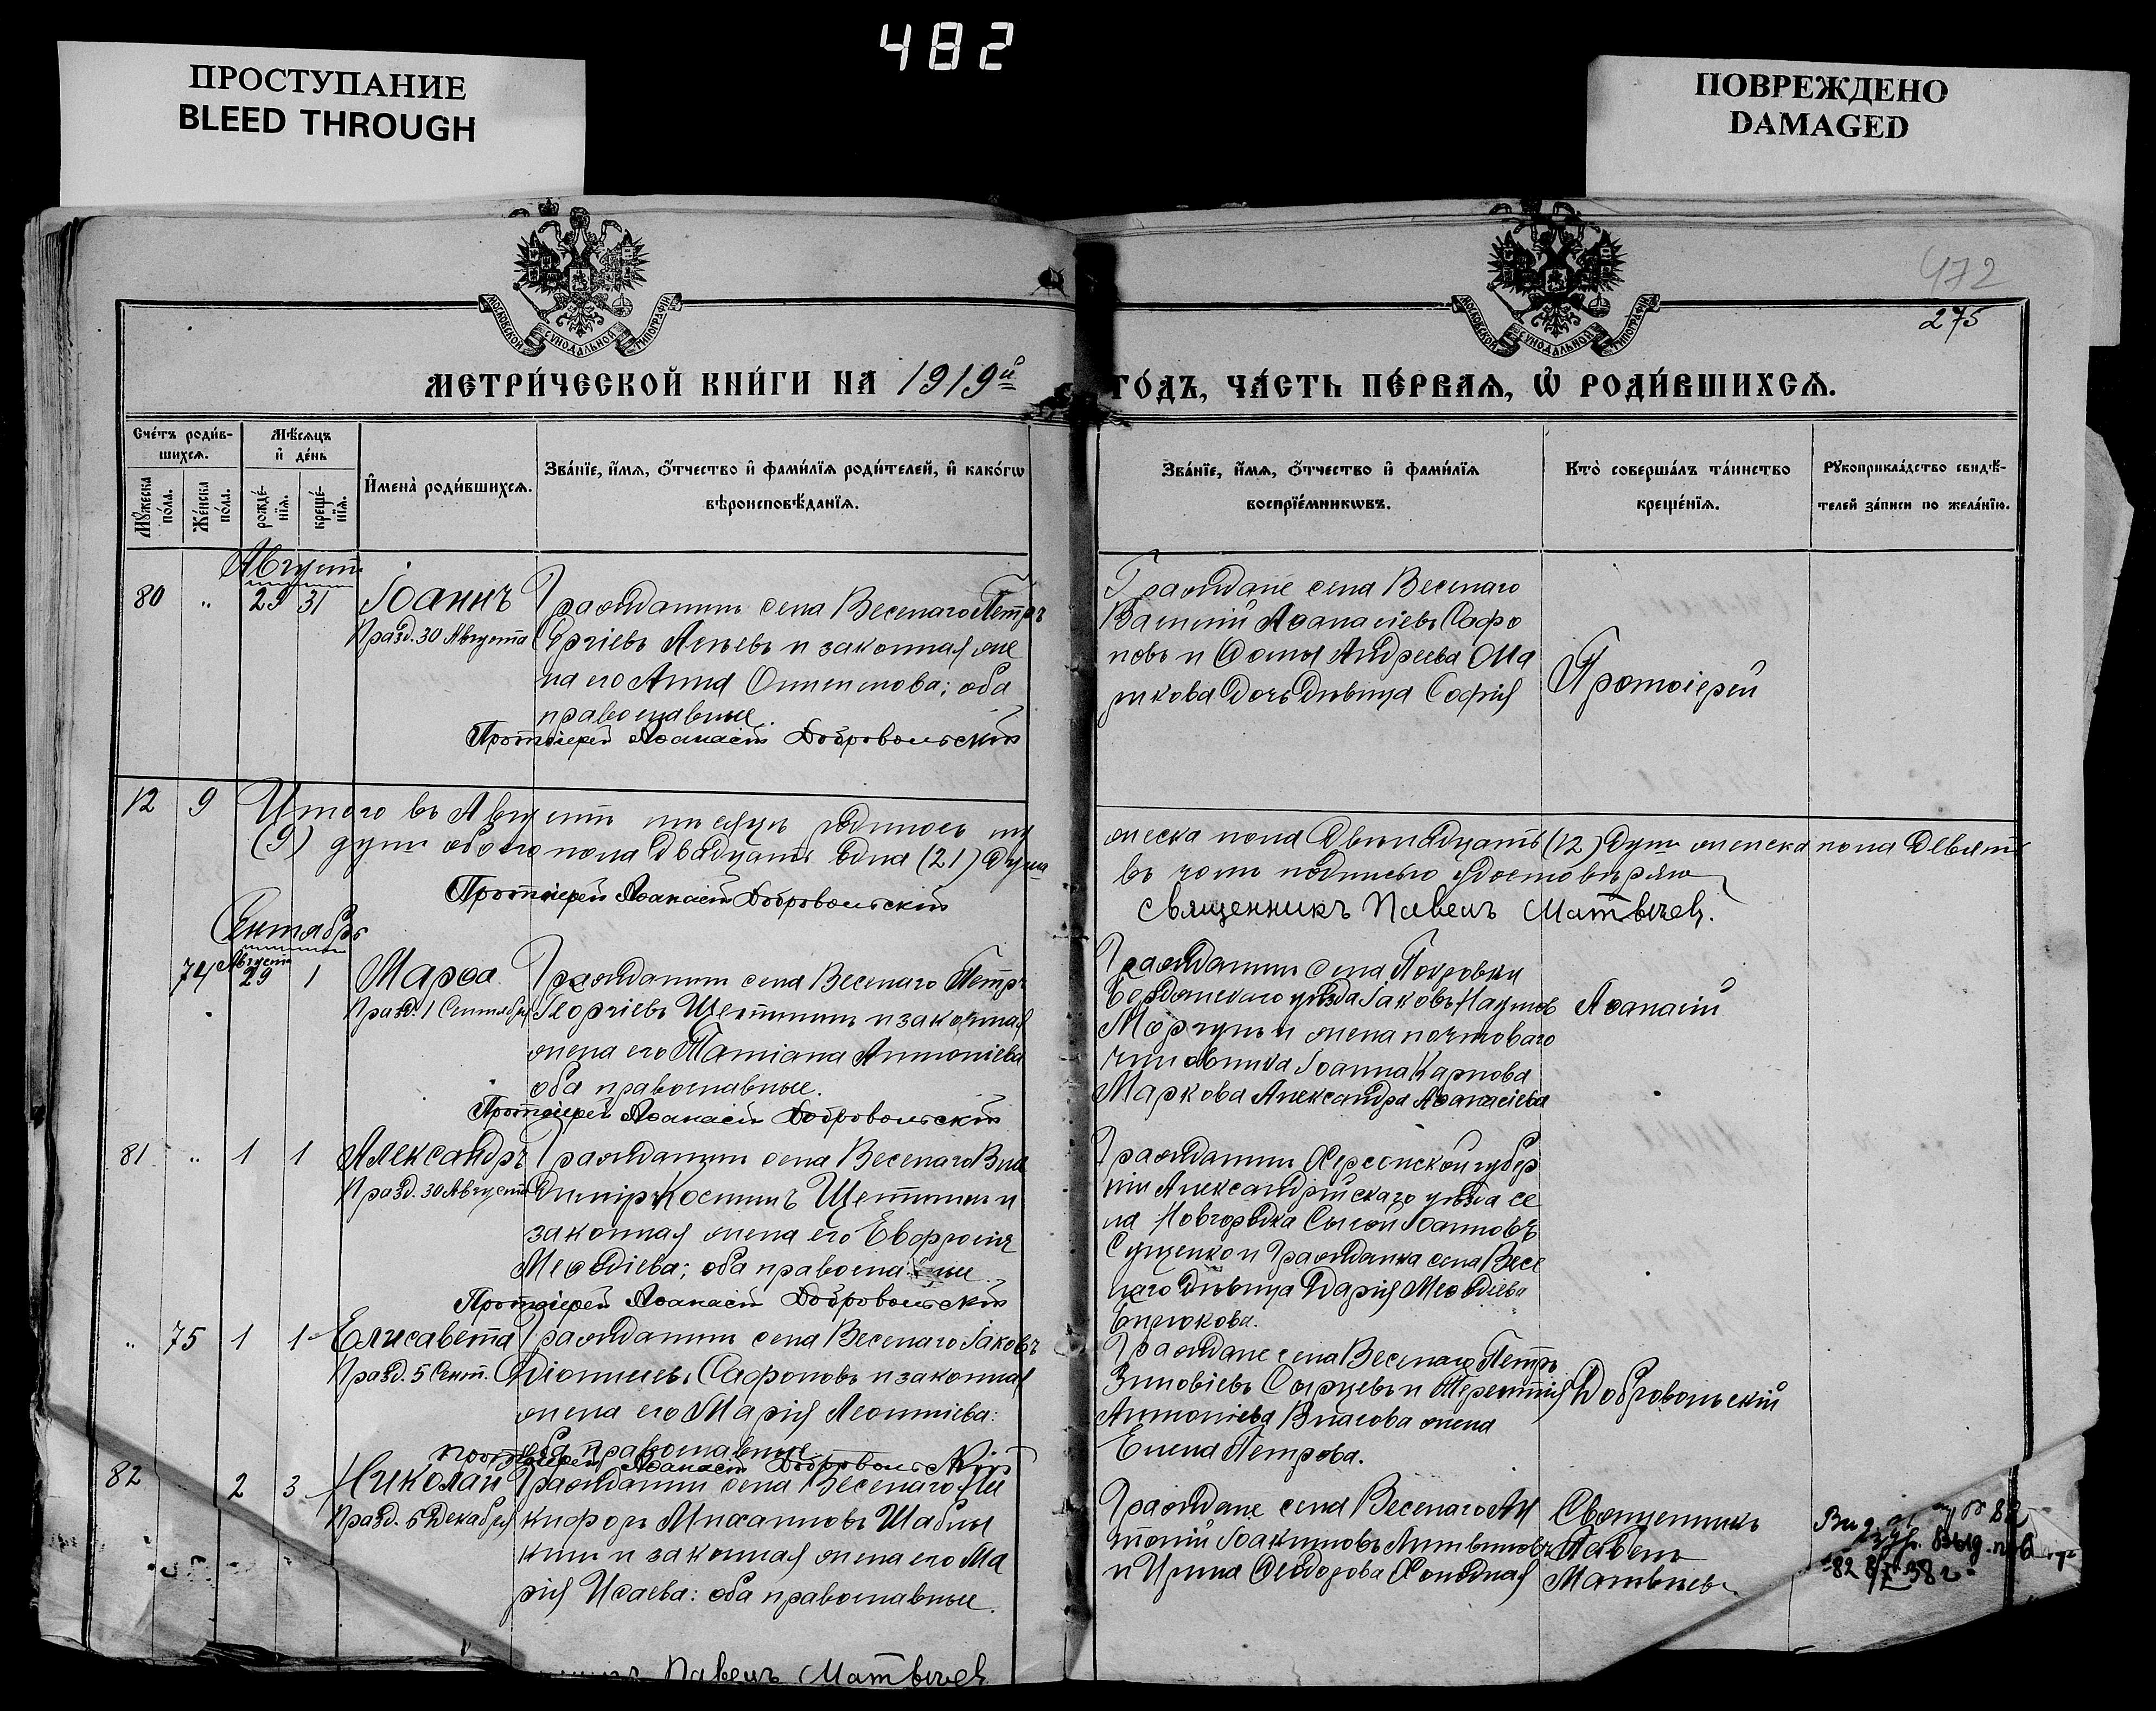 482
ПРОСТУПАНИЕ
BLEED THROUGH
ПОВРЕЖДЕНО
DAMAGED
МОСКОВСКОЙ СѴНОДАЛЬНОЙ ТИПОГРАФІИ
МОСКОВСКОЙ СѴНОДАЛЬНОЙ ТИПОГРАФІИ
472
275
МЕТРИ́ЧЕСКОЙ КНИ́ГИ НА 1919й ГО́ДЪ, ЧА́СТЬ ПЕ́РВАЯ, Ѽ РОДИ́ВШИХСЯ.
Сче́тъ роди́в-
шихся.
Мѣ́сяцъ
и҆ де́нь
Мꙋ́жеска по́ла.
Же́нска по́ла.
рожде́-
нїя.
креще́-
нїя.
И҆мена̀ роди́вшихся.
Зва́нїе, и҆́мя, ѻ҆́тчество и҆ фами́лїя роди́телей, и҆ како́гѡ
вѣроисповѣ́данїя.
Зва́нїе, и҆́мя, ѻ҆́тчество и҆ фами́лїя
воспрїе́мникѡвъ.
Кто̀ соверша́лъ та́инство
креще́нїя.
Рꙋкоприкла́дство свидѣ́-
телей за́писи по жела́нїю.
Августъ
80 " 29 31 Іоаннъ
Празд. 30 Августа
Гражданинъ села Веселаго Петръ
на его Анна; оба
православные.
Протоіерей Аѳанасій Добровольскій
Граждане села Веселаго
Василій Аѳанасіевъ Сафо
новъ и Ѳомы Андреева
дочь дѣвица Софія
Протоіерей
12 9 Итого въ Августѣ мѣсяцѣ родилось му
жеска пола двѣнадцать (12) душъ женска пола девять
(9) душъ обоего пола двадцать одна (21) душа
въ чемъ подписью удостовѣряю
Протоіерей Аѳанасій Добровольскій
Священникъ Павелъ Матвѣевъ.
Сентябрь
74 Августа 29 1 Марѳа
Празд. 1 Сентября
Гражданинъ села Веселаго Петръ
Георгіевъ Щетининъ и законная
жена его Татіана Антоніева
оба православные.
Протоіерей Аѳанасій Добровольскій
Гражданинъ села Покровки
Бердянскаго уѣзда Іаковъ Наумовъ
Моргунъ и жена почтоваго
чиновника Іоанна Карпова
Маркова Александра Аѳанасіева
Аѳанасій
81 " 1 1 Александръ
Празд. 30 Августа
Гражданинъ села Веселаго Вла
диміръ Костинъ Щетининъ и
законная жена его Евфросинія
Меѳодіева; оба православные
Протоіерей Аѳанасій Добровольскій
Гражданинъ Херсонской губер
ніи Александрійскаго уѣзда се
ла Новгородка Іоанновъ
Сущенко и гражданка села Весе
лаго дѣвица Дарія Меѳодіева
Бирюкова.
" 75 1 1 Елисавета
Празд. 5 Сент.
Гражданинъ села Веселаго Іаковъ
Діонисіевъ Сафоновъ и законная
жена его Марія Леонтіева:
оба православные.
Протоіерей Аѳанасій Добровольскій
Граждане села Веселаго Петръ
Зиновіевъ Сырцевъ и Терентія
Антоніева Власова жена
Елена Петрова.
Добровольскій
82 2 3 Николай
Празд. 6 Декабря
Гражданинъ села Веселаго Ни
кифоръ Михаиловъ Шаблы
кинъ и законная жена его Ма
рія Исаева: оба православные.
Граждане села Веселаго Ан
тоній Іоакимовъ Литвиновъ
и Ирина Ѳеодорова Холодная
Священникъ
Павелъ
Матвѣевъ
82
Павелъ Матвѣевъ